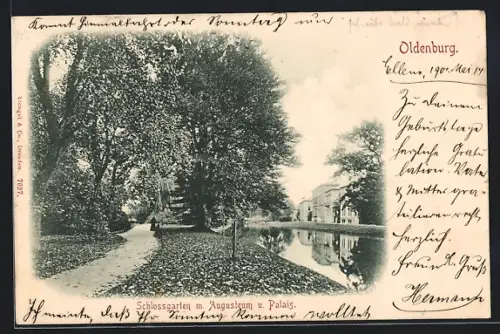 Kommt Himmelfahrt (oder Sonntag) nur
Oldenburg.
Ellens, 190. Mai 14
Zu Deinem
Geburtstage
herzliche Gratu
lation. Vater
& Mutter gra
tulieren recht
herzlich.
Gruß
Hermann
Stengel & Co., Dresden. 7627.
Schlossgarten m. Augusteum u. Palais.
Ich meinte, daß Ihr Sonntag kommen wolltet